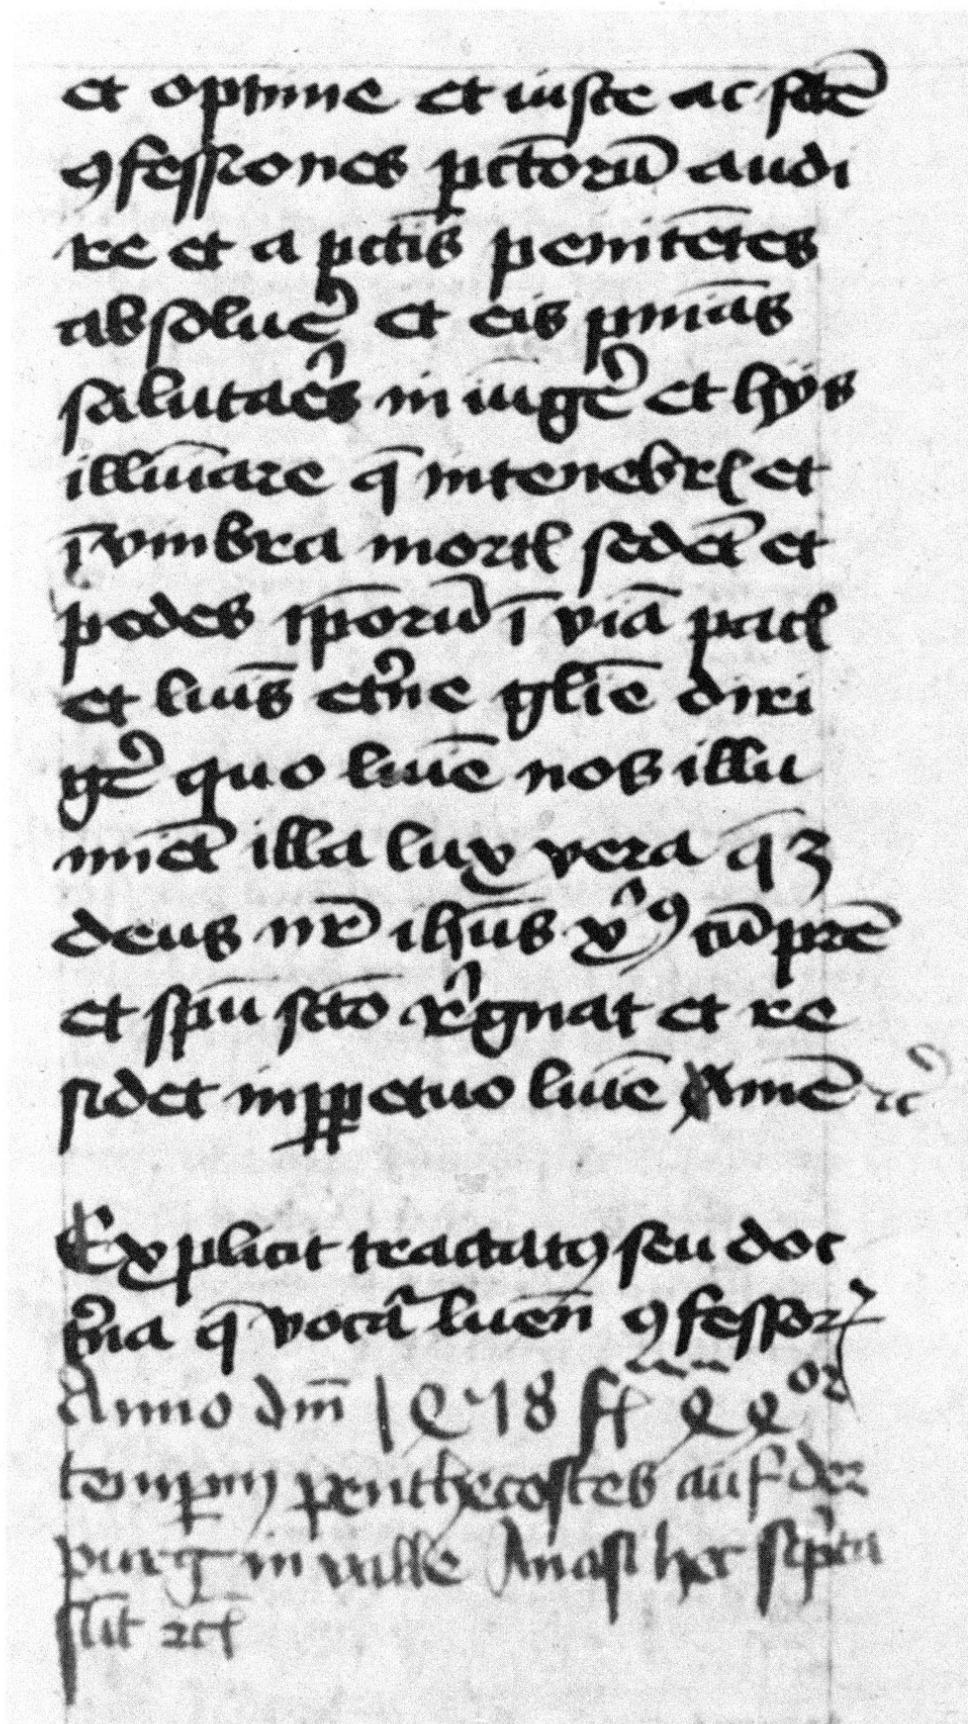 et optime et iuste ac sc̄tē
ꝯfessiones pct̄orū audi
re et a pctīs penitētes
absoluer̉ et eis pniās
salutaēs in iūger̉ et hijs
illūiare q̄ in tenebrꝭ et
ī vmbra mortꝭ sedēt et
pedes ip̄orū ī viā pacꝭ
et luīs et̉ne glīe diri
gẻ quo luīe nos illu
mīet illa lux vera q̄ ꝫ
deus nr̄ ihūs xᷤꝯ cū pr̄e
et sp̄u sc̄to regnat et re
sidet in ꝑpetuo luīe Amē ꝛc̉
Explicit tractatꝯ seu doc
t̉na q̄ vocat̉ lumē ꝯfessorꝝ
Anno dm̄ 1478 fr̄ 44or
temporum penthecostes auf der
purg in valle Anasi hec sc̉pta
sūt ꝛcꝭ